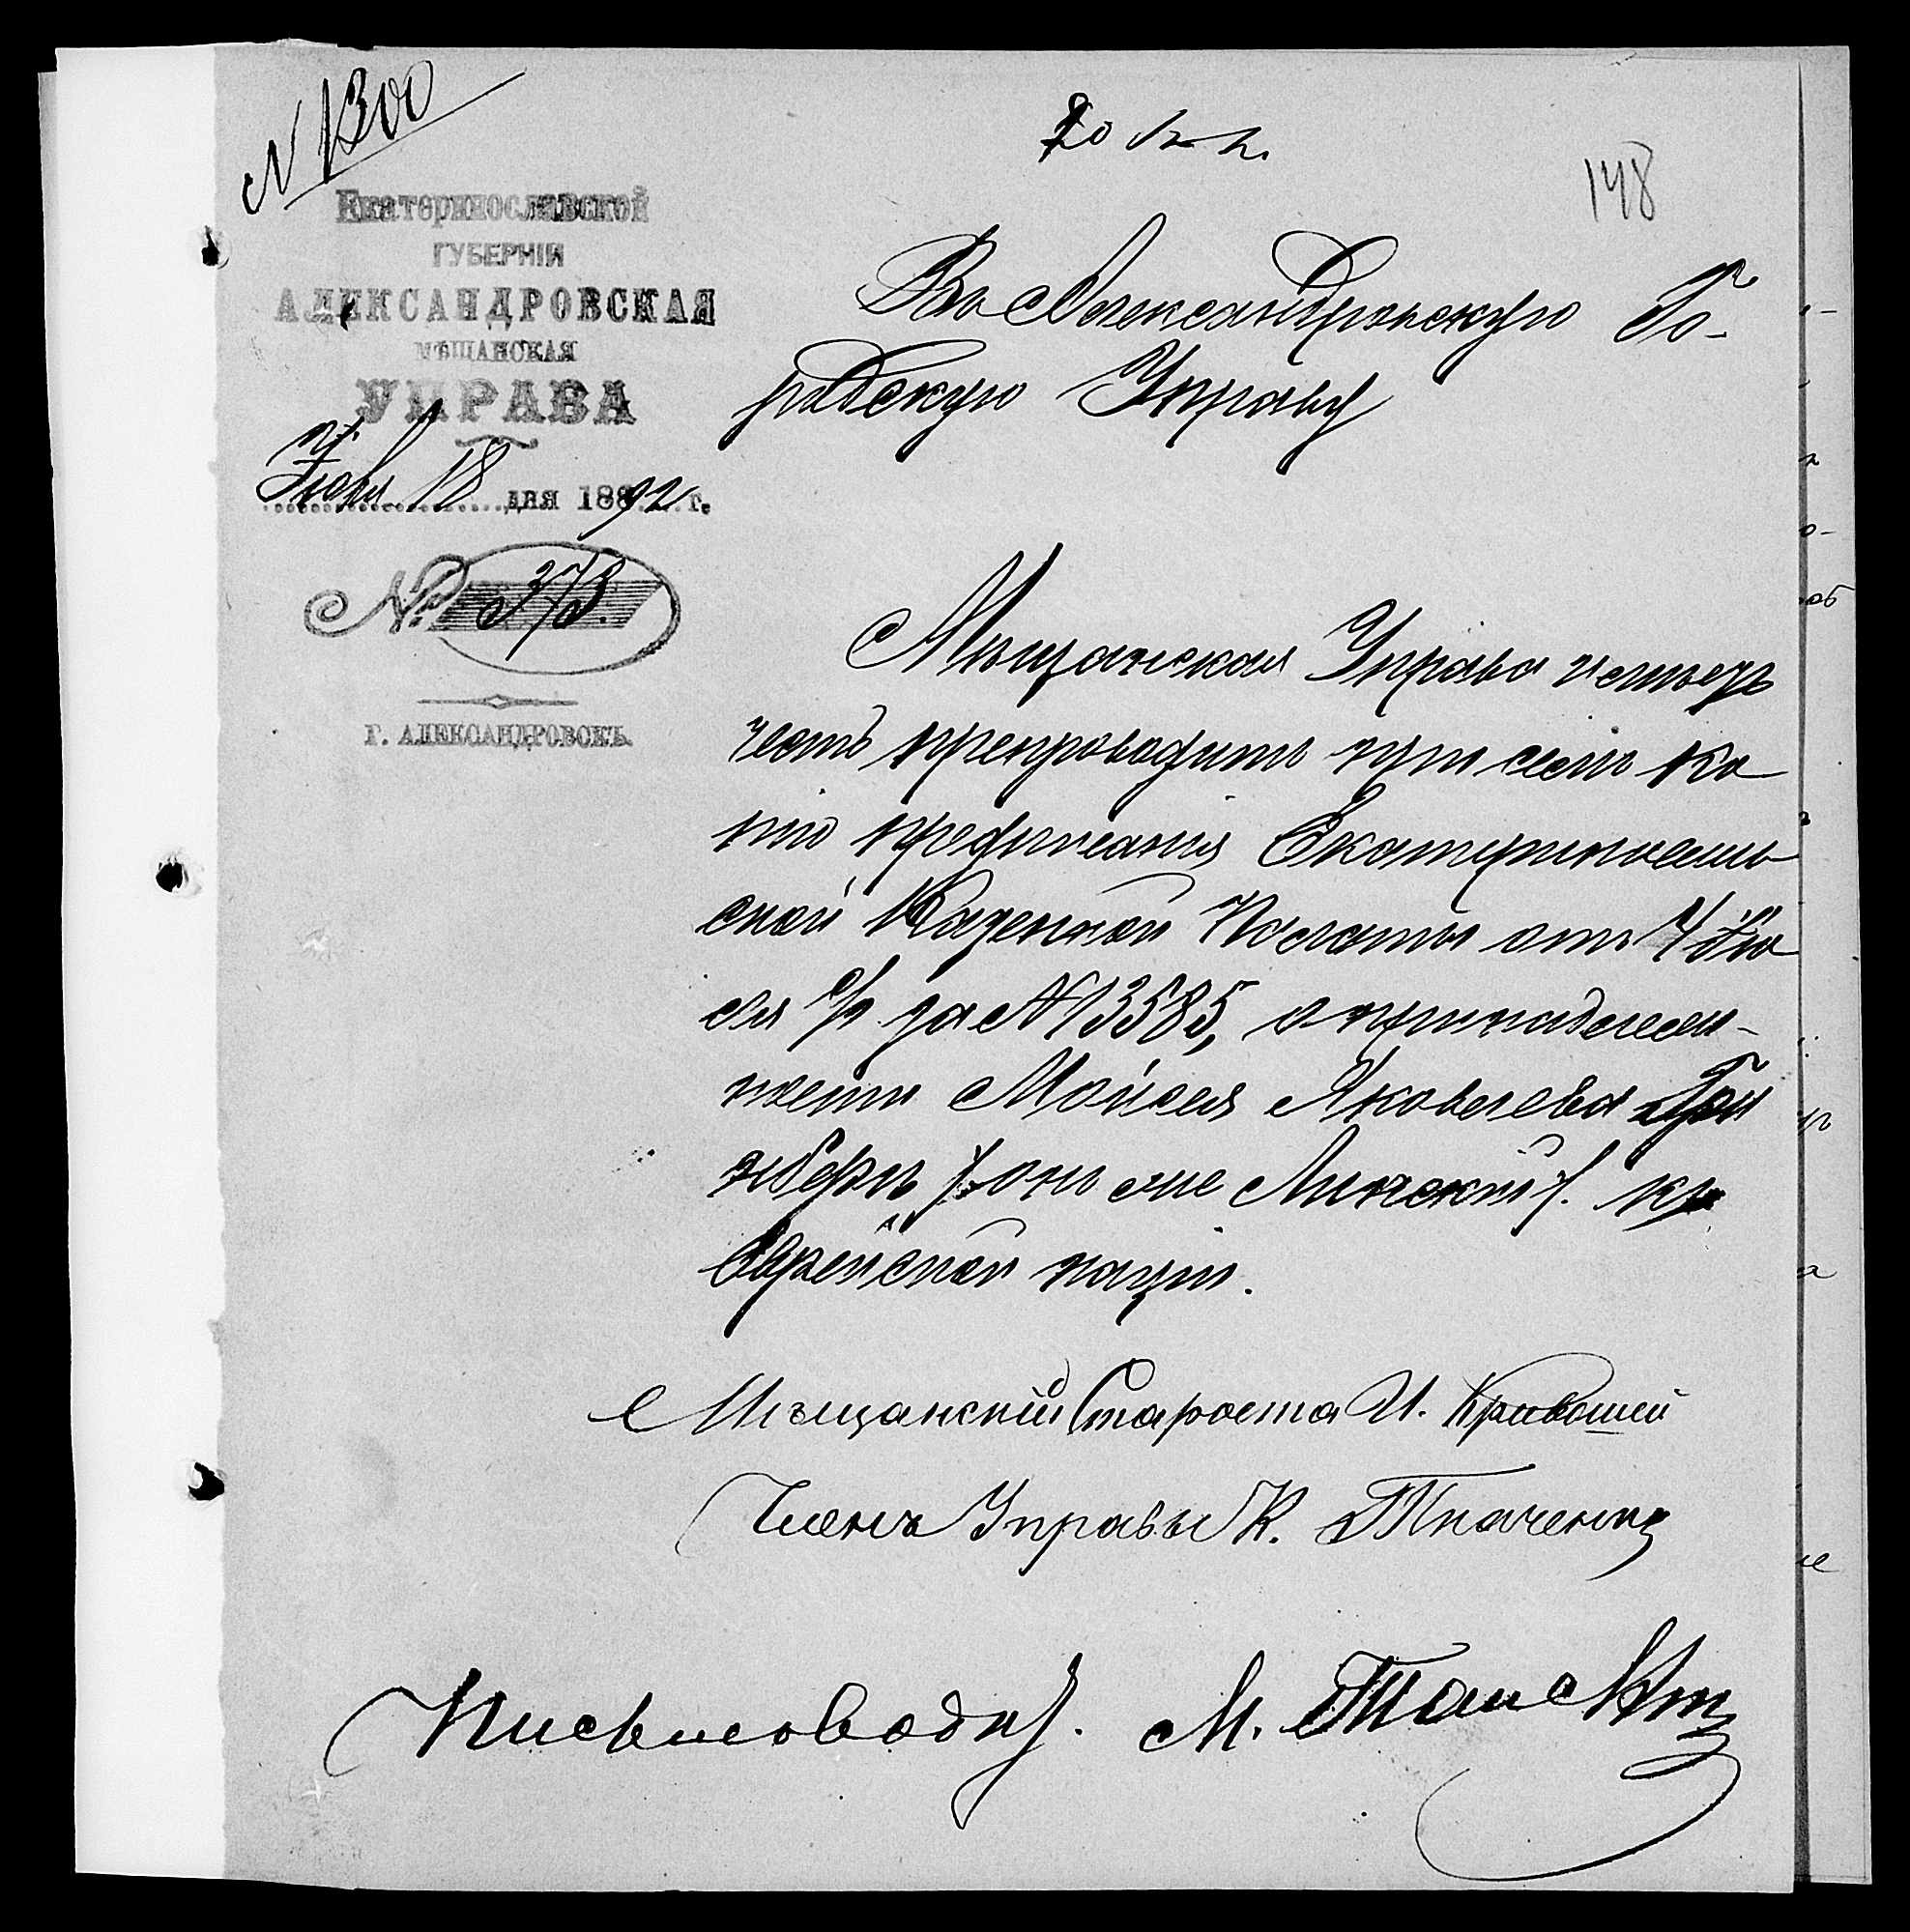 N 1300
148
Екатеринославской
ГУБЕРНІИ
АЛЕКСАНДРОВСКАЯ
МѢЩАНСКАЯ
УПРАВА
18 дня 1892 г.
№ 373.
Г. АЛЕКСАНДРОВСКЪ.
Въ Александровскую Го-
родскую Управу
Мѣщанская Управа имѣетъ
честь препроводить при семъ ко
пію предписанія Екатеринослав
ской Казенной Палаты отъ 4 Ію
ля с/г за N 13585, о принадлеж-
ности Мойсея Яковлева Грин
зберъ /: онъ же Линскій :/. къ
Еврейской націи.
Мѣщанскій Староста И. Кривошей
Членъ Управы К. Ткаченко
Письмоводит. М.